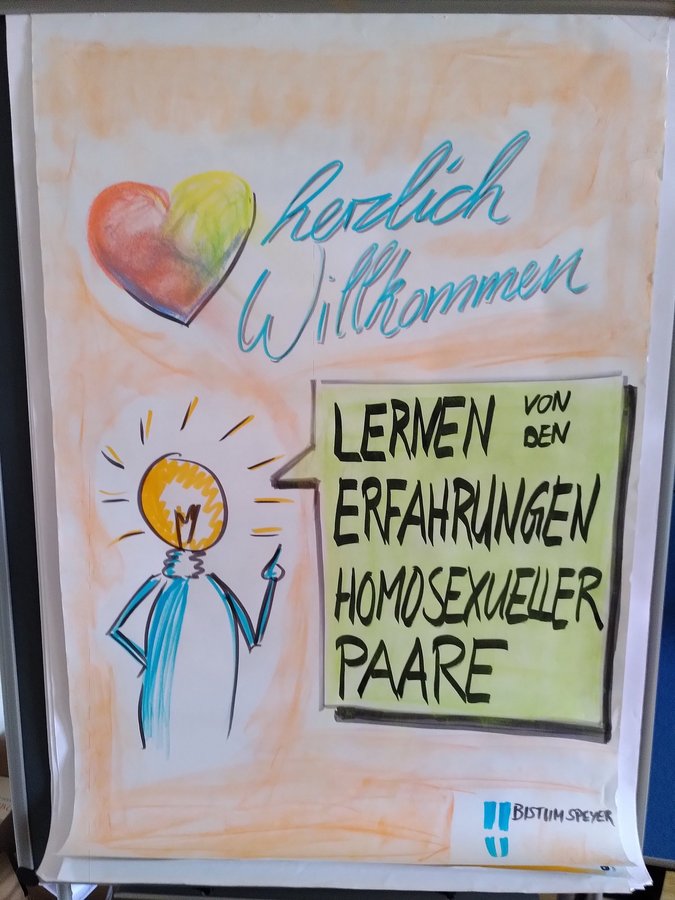 herzlich
Willkommen
LERNEN VON
DEN
ERFAHRUNGEN
HOMOSEXUELLER
PAARE
BISTUM SPEYER